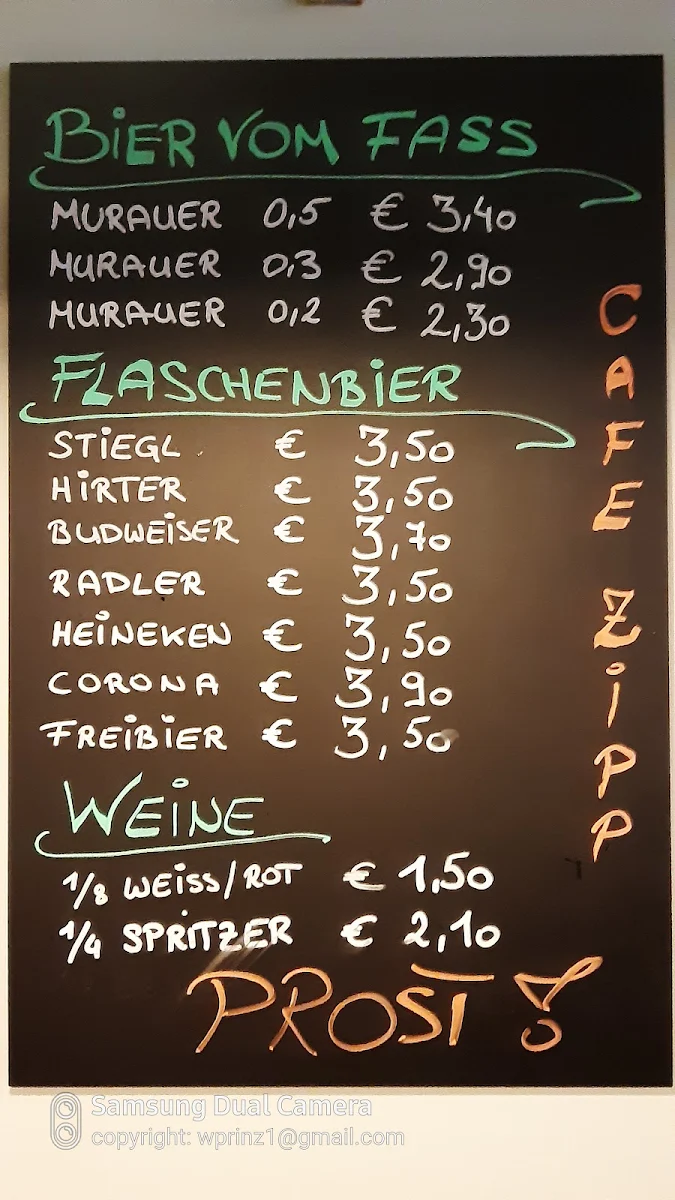 BIER VOM FASS
MURAUER 0,5 € 3,40
MURAUER 0,3 € 2,90
MURAUER 0,2 € 2,30
FLASCHENBIER
STIEGL € 3,50
HIRTER € 3,50
BUDWEISER € 3,70
RADLER € 3,50
HEINEKEN € 3,50
CORONA € 3,90
FREIBIER € 3,50
WEINE
1/8 WEISS/ROT € 1,50
1/4 SPRITZER € 2,10
PROST!
CAFE ZIPP
Samsung Dual Camera
copyright: wprinz1@gmail.com